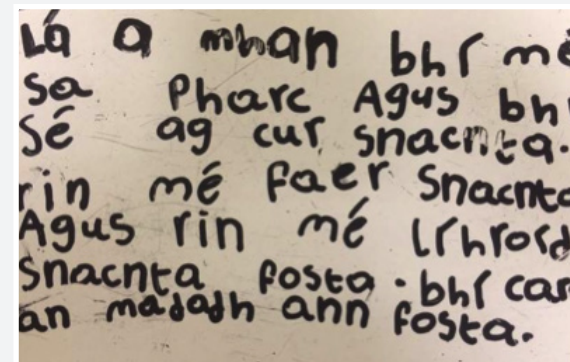 Lá a mhan bhí mé
sa Pharc Agus bhí
sé ag cur snacnta.
rin mé faer snacnta
Agus rin mé
snacnta fosta. bhí car
an madadh ann fosta.